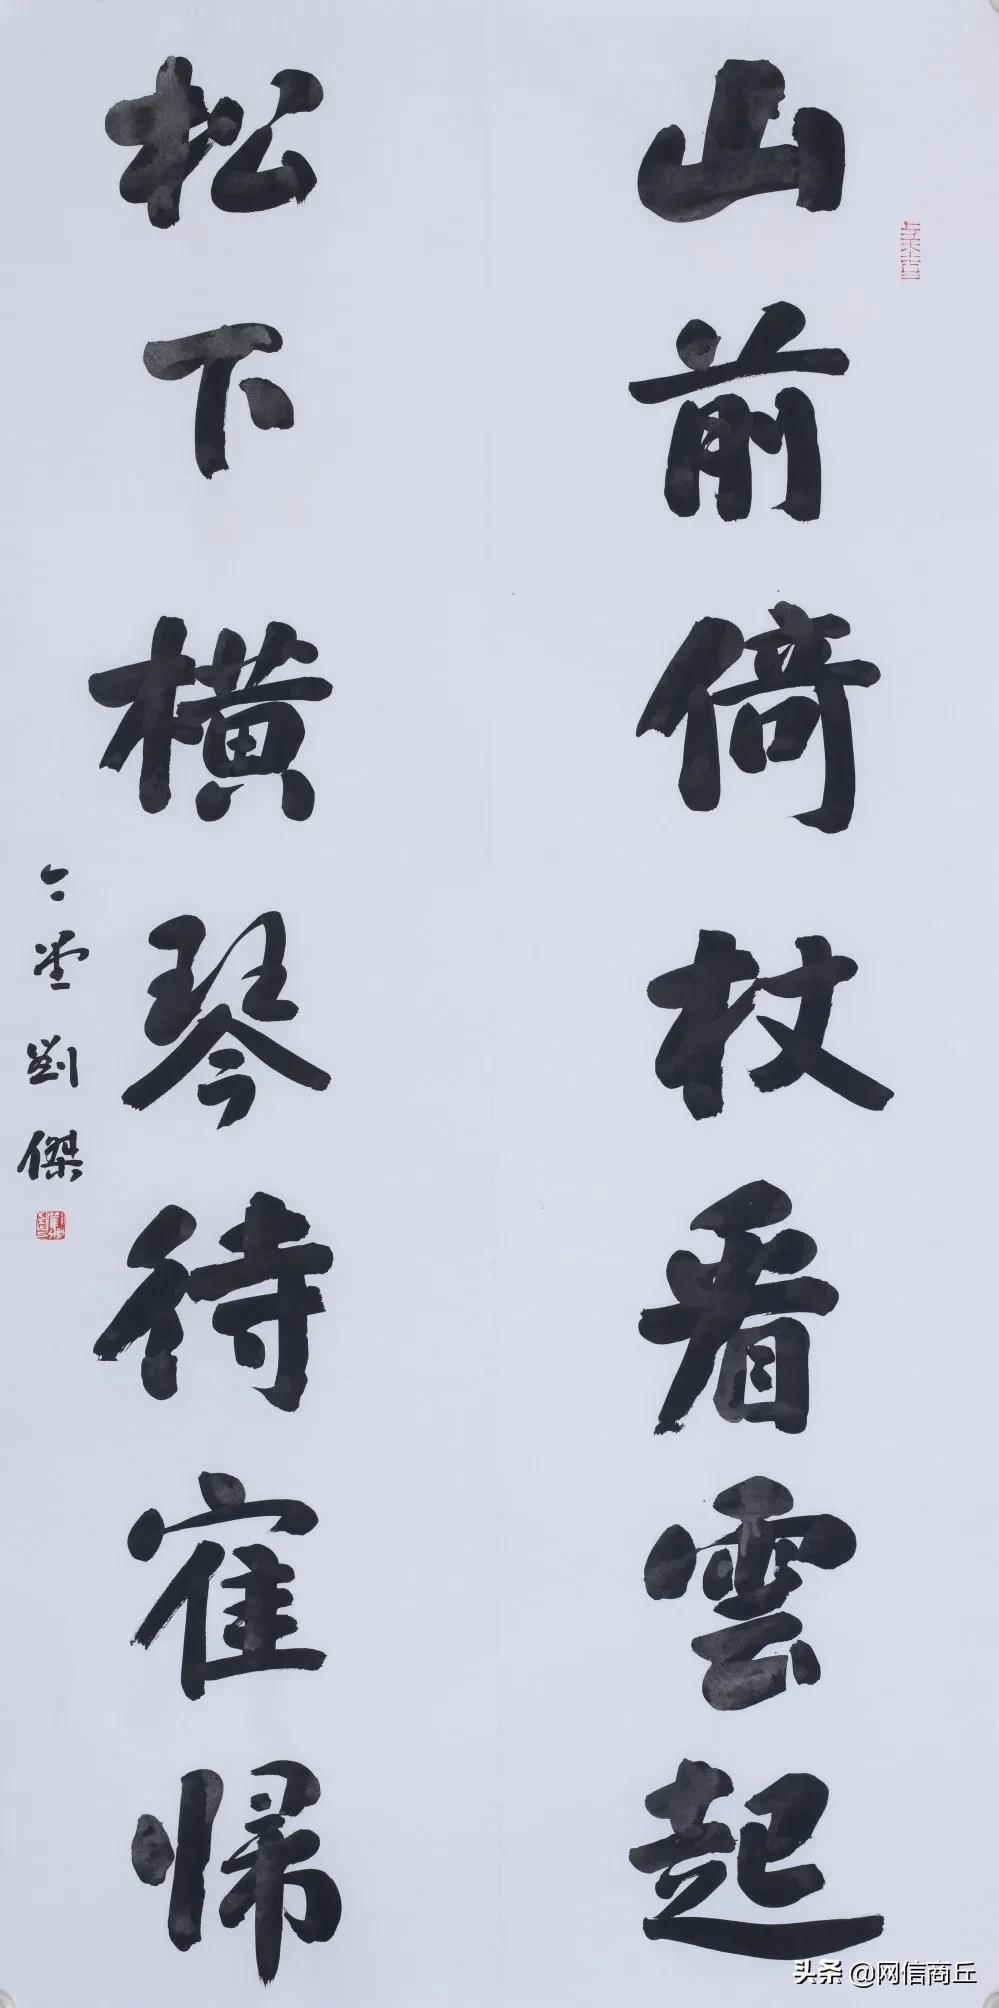 山前倚杖看雲起
松下横琴待隺歸
劉傑
头条 @网信商丘